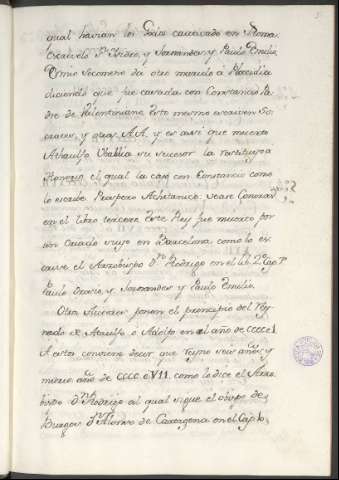 qual havian los Godos cautivado en Roma.
Escrivelo Sn. Isidro, y Jornandes y Paulo Emilio
Osmio Secomeno da otro marido à Placidia
diciendo que fue casada con Constancio Pa-
dre de Valentiniano esto mesmo escriven So-
crates, y otros A.A. y es assi que muerto
Athaulfo Vballia su sucesor la restituyo a
Honorio el qual la caso con Constancio como
lo escribe Prospero Achitanico. vease Conrado
en el libro tercero. Este Rey fue muerto por
un Criado suyo en Barcelona, como lo es-
crive el Arzobispo Dn. Rodrigo en el lib. 2º Cap.
Paulo Orosio, y Jornandes y Paulo Emilio.
Otros Auctores ponen el principio del Rey-
nado de Ataulfo o Adolfo en el año de CCCCX
A estos conviene decir que reyno seis años, y
murio año de CCCC XVII. como lo dice el Arzo-
bispo Dn. Rodrigo al qual sigue el obispo de
Burgos Dn. Alonso de Cartagena en el Cap.